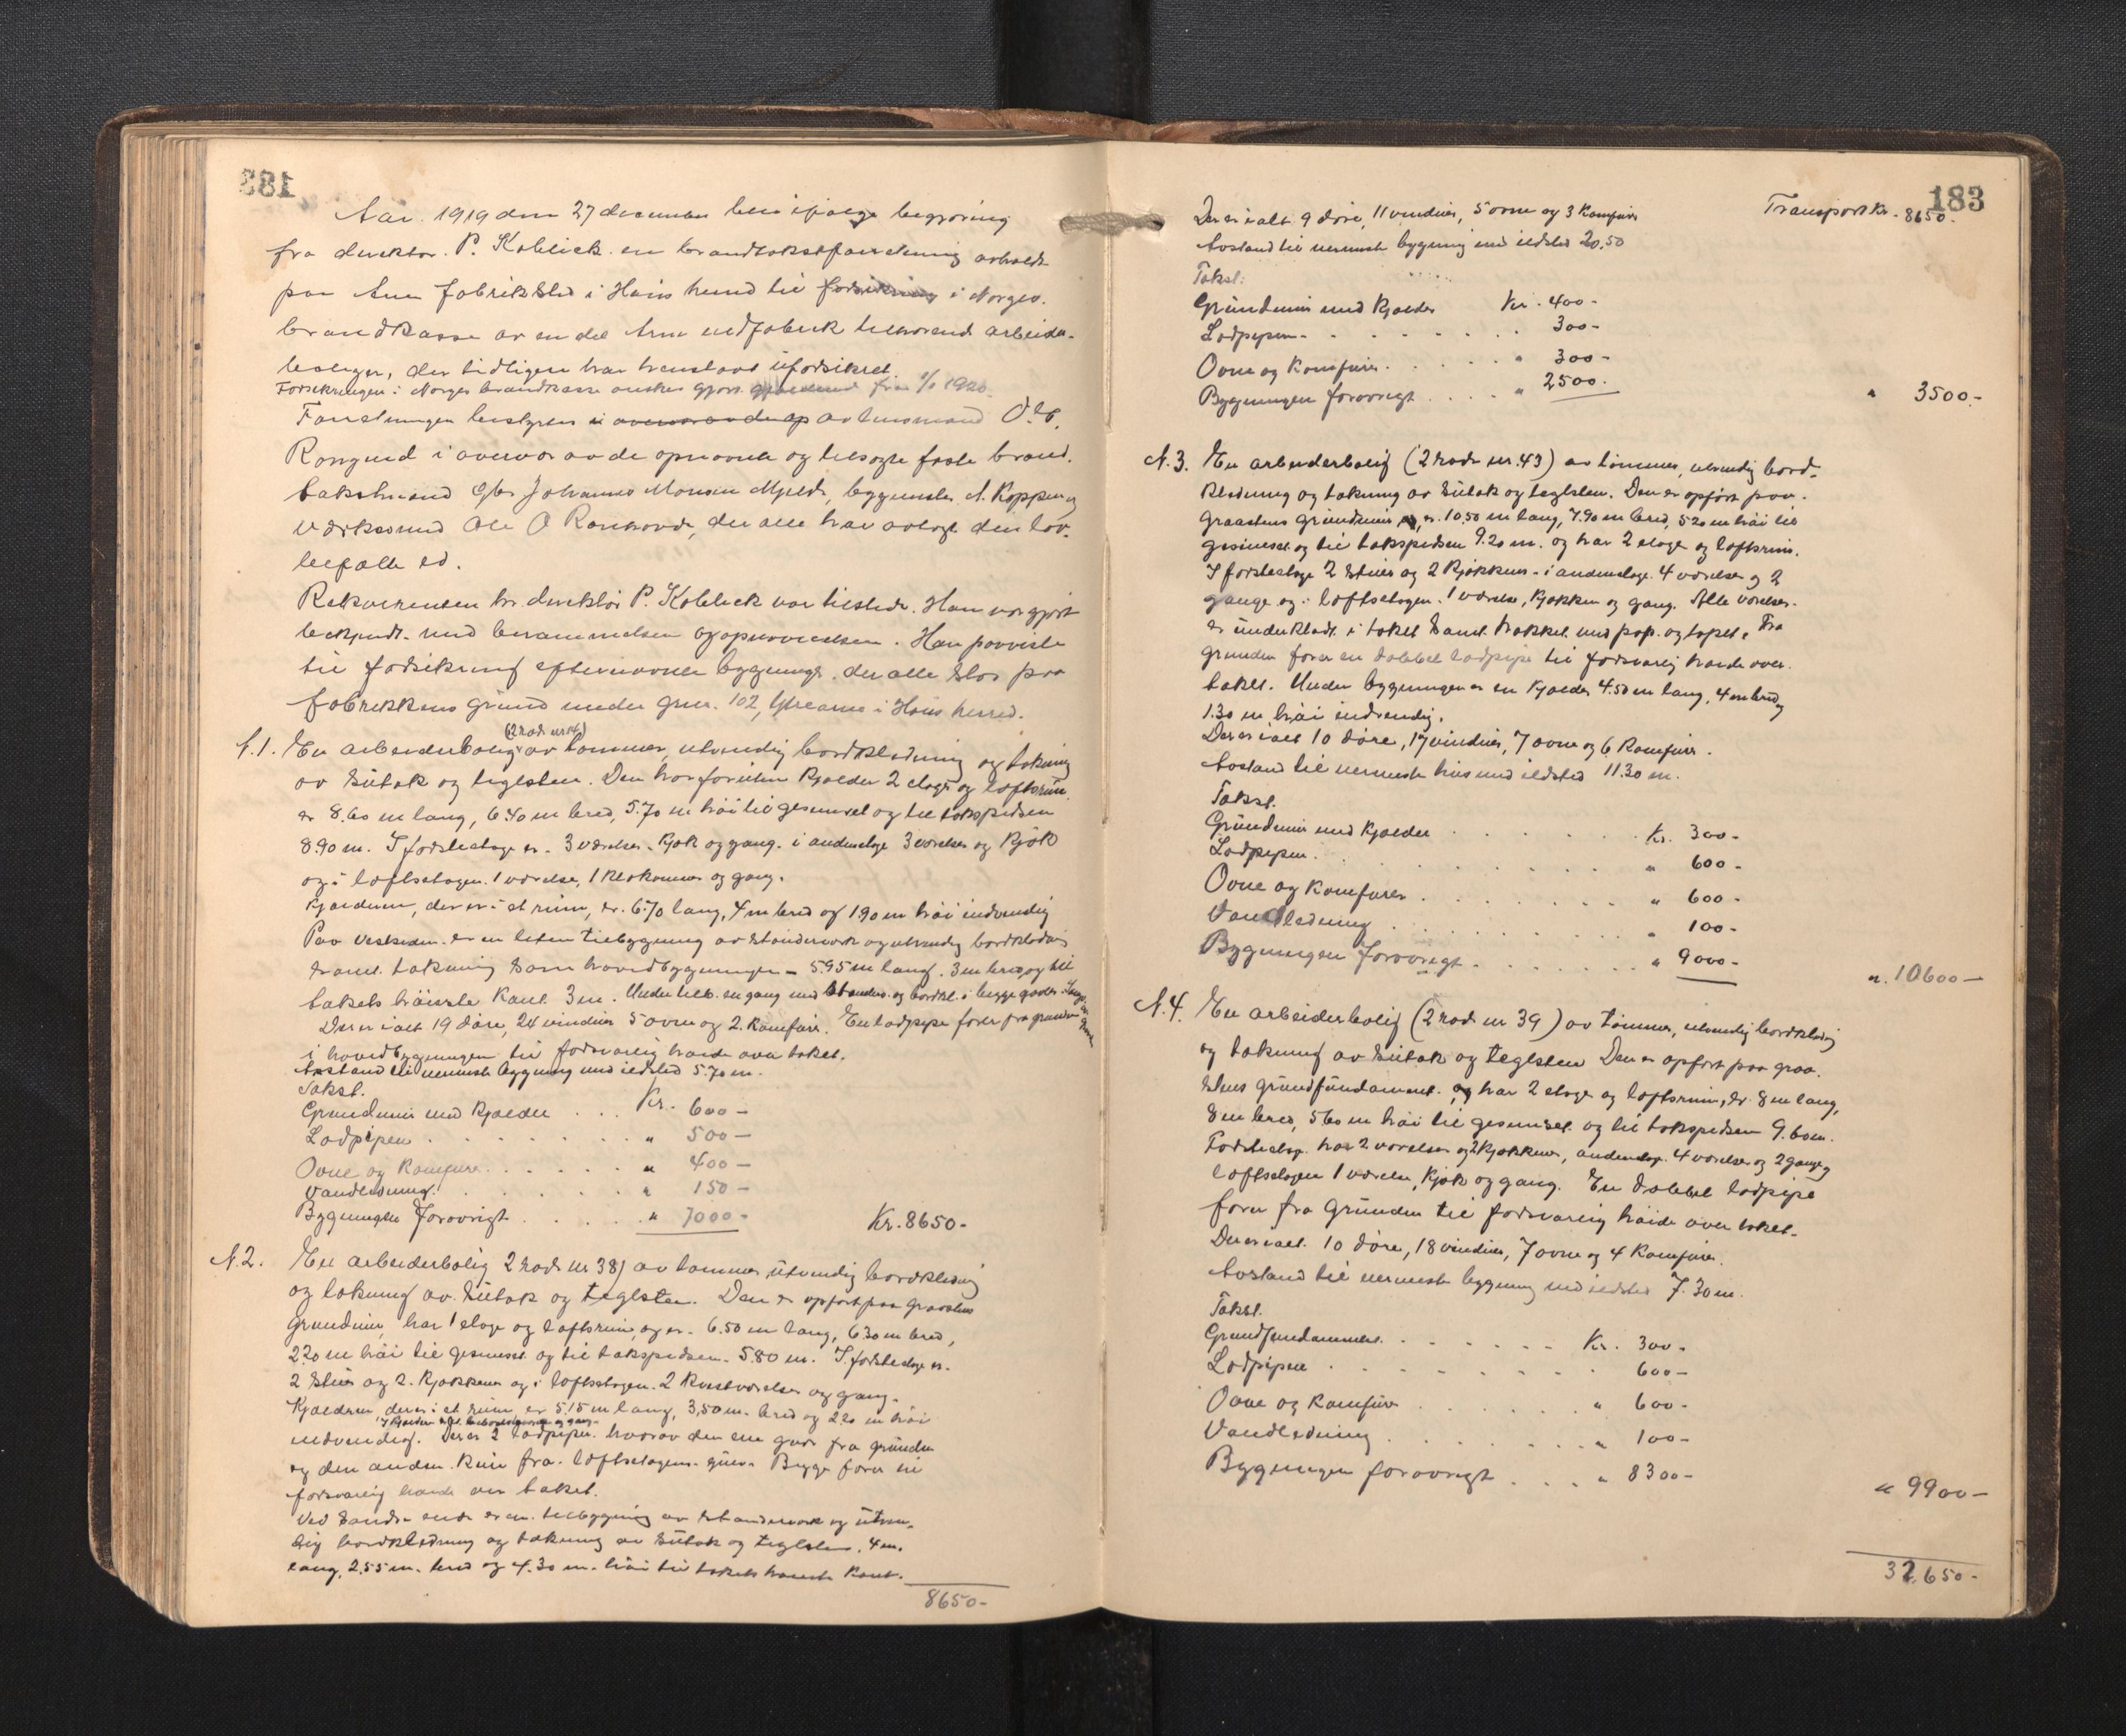 183
Aar 1919 den 27 december blev ifølge begjæring
fra direktør P. Koblick en brandtakstforretning avholdt
paa Arne fabriksted i Haus herred til i Norges
brandkasse av en del Arne uldfabrik tilhørende arbeider-
boliger, der tidligere har henstaat uforsikret.
Forsikringen i Norges brandkasse ønskes gjort gjældende fra 1/1 1920.
Forretningen bestyres av lensmand O. C.
Rongved i overvær av de opnævnte og tilsagte faste brand-
takstmænd Johannes Monsen Mjelde, bygmester A. Koppen og
Ole O , der alle har avlagt den lov-
befalte ed.
Rekvirenten hr. direktør P. Koblick var tilstede. Han var gjort
bekjendt med berammelsen og opnævnelsen. Han paaviste
til forsikring efternævnte bygninger, der alle staar paa
fabrikkens grund under gnr. 102, Ytrearne i Haus herred.
N. 1. En arbeiderbolig av tømmer, utvendig bordklædning og tækning
av sutak og teglsten. Den har foruten kjælder 2 etager og loftsrum,
er 8.60 m lang, 6.40 m bred, 5.70 m høi til gesimset og til takspidsen
8.90 m. I førsteetage er 3 værelser, kjøk og gang, i andenetage 3 værelser og kjøk
og i loftsetagen 1 værelse, 1 klækammer og gang.
Kjælderen, der er i et rum, er 6.70 lang, 4 m bred og 1.90 m høi indvendig
Paa vestsiden er en liten tilbygning av stænderverk og utvendig bordklædning
samt tækning som hovedbygningen - 5.95 m lang, 3 m bred og til
takets høieste kant 3 m. Under tilb. en gang med
Der er ialt 19 døre, 24 vinduer 5 ovne og 2 komfure. En lodpipe fører fra grunden
i hovedbygningen til forsvarlig høide over taket.
Avstand til nærmeste bygning med ildsted 5.70 m.
Takst.
Grundmur med kjælder . . . Kr. 600 -
Lodpipen . . . . . . . " 500 -
Ovne og komfure . . . . . " 400 -
Vandledning . . . . . . " 150 -
Bygningen forøvrigt . . . . . " 7000 - Kr. 8650 -
N. 2. En arbeiderbolig 2 rode nr 38) av tømmer, utvendig bordklædning
og tækning av sutak og teglsten. Den er opført paa graastens
grundmur, har 1 etage og loftsrum, og er 6.50 m lang, 6.30 m bred,
2.70 m høi til gesimset og til takspidsen 5.80 m. I førsteetage er
2 stuer og 2 kjøkkener og i loftsetagen 2 kvistværelser og gang.
Kjælderen, der er i et rum er 5.15 m lang, 3,50 m bred og 2.20 m høi
indvendig. Der er 2 lodpiper, hvorav den ene gaar fra grunden
og den anden kun fra loftsetagens gulv. Begge fører til
forsvarlig høide over taket.
Ved søndre ende er en tilbygning av stænderverk og utven-
dig bordklædning og tækning av sutak og teglsten, 4 m
lang, 2.55 m. bred og 4.30 m. høi til takets høieste kant.
8650 -
183
Der er ialt 9 døre, 11 vinduer, 5 ovne og 3 komfure Transport Kr. 8650.
Avstand til nærmeste bygning med ildsted 20.50
Takst:
Grundmur med kjælder Kr. 400 -
Lodpipen - . . . . . . 300 -
Ovne og komfure . . . . " 300 -
Bygningen forøvrigt . . . . " 2500. " 3500 -
N. 3. En arbeiderbolig (2 rode nr. 43) av tømmer, utvendig bord-
klædning og tækning av sutak og teglsten. Den er opført paa
graastens grundmur, er 10.50 m lang, 7.90 m bred, 5.20 m høi til
gesimset og til takspidsen 9.20 m. og har 2 etager og loftsrum.
I førsteetage 2 stuer og 2 kjøkkener - i andenetage 4 værelser og 2
gange og i loftsetagen 1 værelse, kjøkken og gang. Alle værelser
er underklædt i taket samt trækket med pap og tapet. Fra
grunden fører en dobbel lodpipe til forsvarlig høide over
taket. Under bygningen er en kjælder 4.50 m lang, 4 m bred og
1.30 m høi indvendig.
Der er ialt 10 døre, 17 vinduer, 7 ovne og 6 komfure.
Avstand til nærmeste hus med ildsted 11.30 m.
Takst.
Grundmur med kjælder . . . . . . Kr. 300 -
Lodpipen . . . . . . . " 600 -
Ovne og komfurer . . . . . . " 600 -
Vandledning . . . . . . . " 100 -
Bygningen forøvrigt . . . . . " 9000 - " 10600 -
N. 4. En arbeiderbolig (2 rode nr 39) av tømmer, utvendig bordklædning
og tækning av sutak og teglsten Den er opført paa graa-
stens grundfundament og har 2 etager og loftsrum, er 8 m lang,
8 m bred, 5.60 m høi til gesimset og til takspidsen 9.60 m.
Førsteetage har 2 værelser og 2 kjøkkener, andenetage 4 værelser og 2 gange og
loftsetagen 1 værelse, kjøk og gang. En dobbel lodpipe
fører fra grunden til forsvarlig høide over taket.
Der er ialt 10 døre, 18 vinduer, 7 ovne og 4 komfure.
Avstand til nærmeste bygning med ildsted 7.30 m.
Takst.
Grundfundament . . . . . . Kr. 300 -
Lodpipen . . . . . . . 600 -
Ovne og komfure . . . . . " 600 -
Vandledning . . . . . . " 100 -
Bygningen forøvrigt . . . " 8300 - " 9900 -
32.650 -